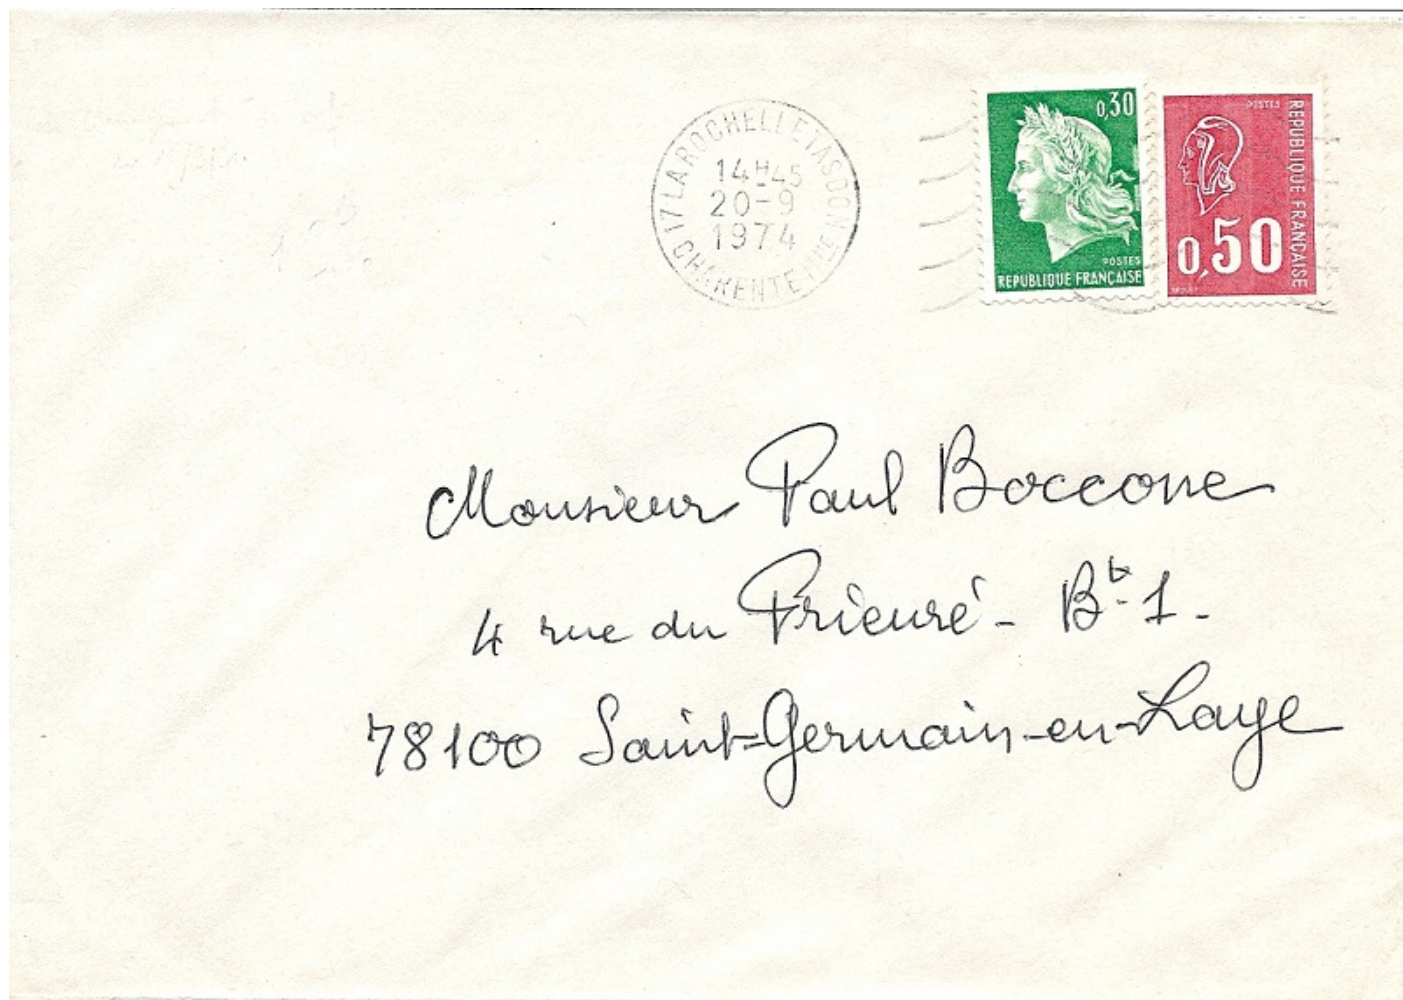 17 LA ROCHELLE TASDON
14H45
20-9
1974
CHARENTE MME
0,30
POSTES
REPUBLIQUE FRANÇAISE
POSTES
REPUBLIQUE FRANÇAISE
0,50
Monsieur Paul Boccone
4 rue du Prieuré - Bt 1.
78100 Saint-Germain-en-Laye